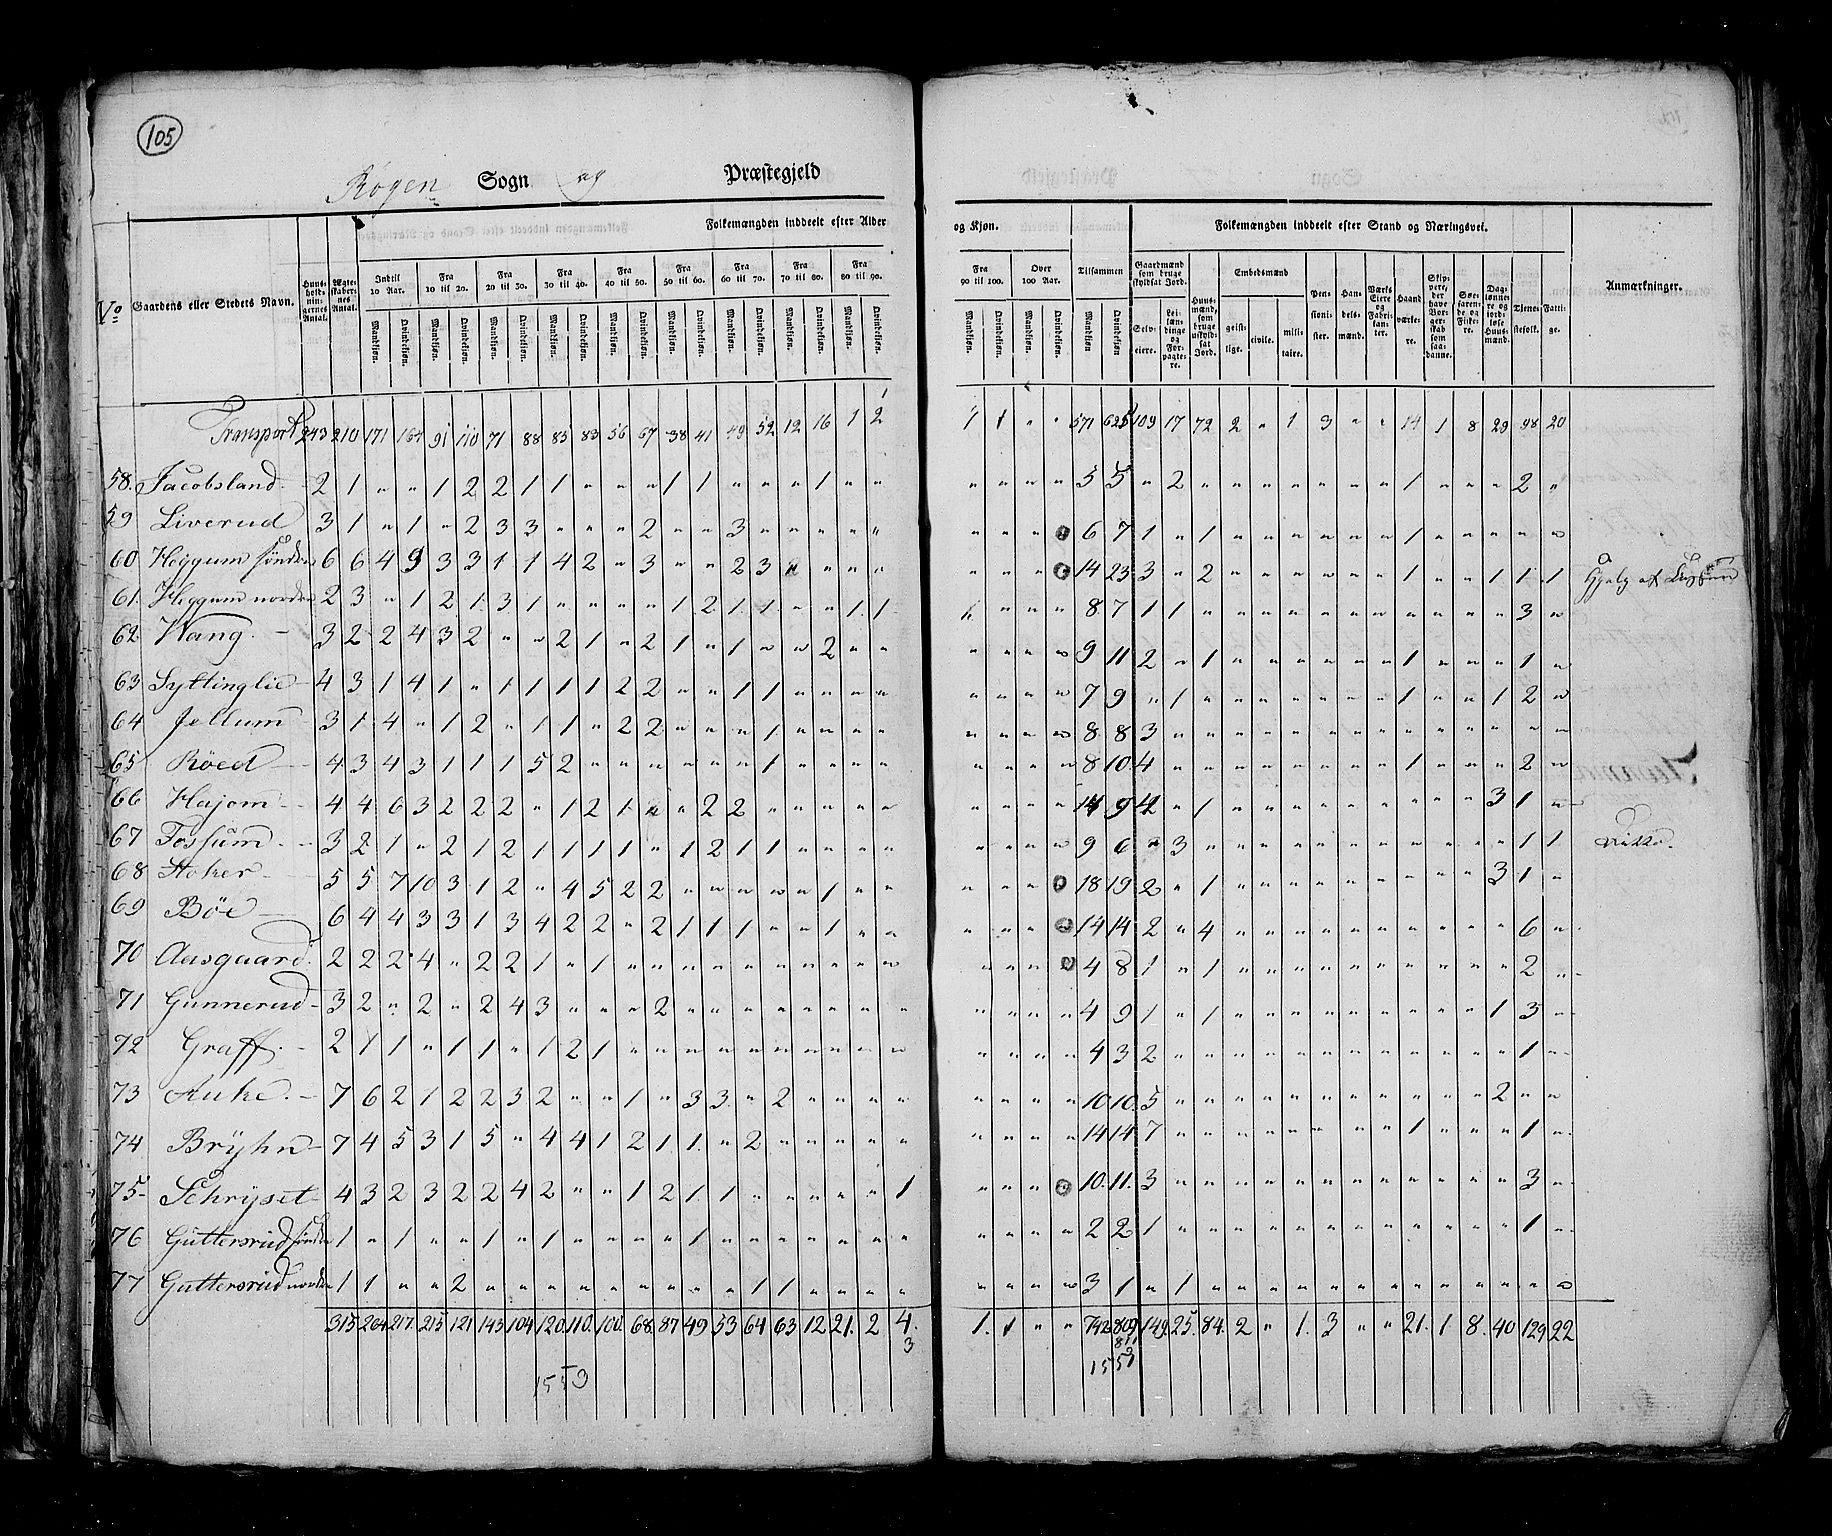 105
Røgen Sogn og Præstegjeld
Folkemængden inddeelt efter Alder
og Kjøn.
Folkemængden inddeelt efter Stand og Næringsvei.
No Gaardens eller Stedets Navn. Huus-holdnin-gernes Antal. Ægte-skaber-nes Antal.
Indtil 10 Aar. Fra 10 til 20. Fra 20 til 30. Fra 30 til 40. Fra 40 til 50. Fra 50 til 60. Fra 60 til 70. Fra 70 til 80. Fra 80 til 90.
Fra 90 til 100. Over 100 Aar. Tilsammen
Mandkjøn. Qvindekjøn.
Gaardmænd som bruge skyldsat Jord. Selv-eiere. Lei-læn-dinge og For-pagte-re. Huus-mænd, som bruge uskyld-sat Jord. Embedsmænd geist-lige. civile. mili-taire. Pen-sioni-ster. Han-dels-mænd. Værks Eiere og Fabri-kan-ter. Haand-værke-re. Skip-pere, der have Bor-ger-skab som saa-danne. Søe-faren-de og Fiske-re. Dag-lønne-re og jord-løse Huus-mænd. Tjene-stefolk. Fatti-ge. Anmærkninger.
Transport 243 210 171 164 91 110 71 88 85 83 56 67 38 41 49 52 12 16 1 2 1 1 " " 571 625 109 17 72 2 " 1 3 " " 14 1 8 29 98 20
58. Jacobsland 2 1 " " 1 2 2 1 1 " " " 1 1 " " " 1 " " " " " " 5 5 " 2 " " " " " " " 1 " " " 2 "
59 Liverud 3 1 " 1 " 2 3 3 " " " 2 " " 3 " " " " " " " " " 6 7 1 " 1 " " " " " " 1 " " " " "
60 Høggum sønden 6 6 4 9 3 3 1 1 4 2 " 3 " " 2 3 " " " " " " " " 14 23 3 " 2 " " " " " " 1 " " 1 1 1 Hjelp af
61. Høggum norden 2 3 " 1 2 1 3 1 " " " " 1 2 1 1 " " 1 1 " " " 8 7 1 1 " " " " " " " " " " " 3 "
62 Wang 3 2 2 4 3 2 " " 2 1 " 2 1 " 1 " " 2 " " " " " " 9 11 2 " 1 " " " " " " 1 " " " 1 "
63 Syltinglie 4 3 1 4 1 " 1 1 1 1 2 2 " " 1 1 " " " " " " " " 7 9 " 1 " " " " " " " 1 " " 1 2 "
64 Jellum 3 1 4 " 1 2 " 1 1 " 2 2 " " " 1 " " " " " " " " 8 8 3 " " " " " " " " " " " " " "
65 Röed 4 3 4 3 1 1 1 5 2 " " " " " " 1 " " " " " " " " 8 10 4 " " " " " " " " 1 " " " 2 "
66 Hajom 4 4 6 3 2 2 2 " 1 2 1 " " 2 2 " " " " " " " " " 14 9 4 " 1 " " " " " " " " " 3 1 "
67 Fossum 3 2 1 " 2 1 2 1 1 1 1 " 1 2 1 1 " " " " " " " " 9 6 " 3 " " " " " " " " " " " 1 1
68 Stoker 5 5 7 10 3 1 2 " 4 5 2 2 " " " " " 1 " " " " " " 18 19 2 " 1 " " " " " " " " " 3 1 "
69 Böe 6 4 4 3 3 1 3 4 2 2 " 2 1 1 1 " " 1 " " " " " " 14 14 2 " 4 " " " " " " " " " " 6 "
70 Aasgaard 2 2 2 4 " 2 2 1 " 1 " " " " " " " " " " " " " " 4 8 1 " 1 " " " " " " " " " " 2 "
71 Gunnerud 3 2 " 2 " 2 4 3 " " " 2 " " " " " " " " " " " " 4 9 1 " 1 " " " " " " " " " 1 3 "
72 Graff 2 1 1 " 1 1 " 1 2 1 " " " " " " " " " " " " " " 4 3 2 " " " " " " " " " " " " 1 "
73 Auke 7 6 2 1 2 2 3 2 " " 1 " 3 3 " 2 " " " " " " " " 10 10 5 " " " " " " " " " " " 2 " "
74 Brÿhn 7 4 5 3 1 5 " 4 4 1 2 1 1 " 2 " " " " " " " " " 14 14 7 " " " " " " " " 1 " " " 1 "
75 Schrÿset 4 3 2 3 2 2 4 2 " " 1 2 1 1 " " " " " 1 " " " " 10 11 3 " " " " " " " " " " " " 3 "
76 Guttersrud sønden 1 " 1 " " 1 " 1 " " " " 1 " " " " " " " " " " " 2 2 1 " " " " " " " " " " " " 1 "
77 Guttersrud norden 1 1 " " 2 " " " " " " " " " 1 1 " " " " " " " " 3 1 " 1 " " " " " " " " " " " " "
315 264 217 215 121 143 104 120 110 100 68 87 49 53 64 63 12 21 2 4 1 1 " " 742 809 149 25 84 2 " 1 3 " " 21 1 8 40 129 22
3
811
1553
1553